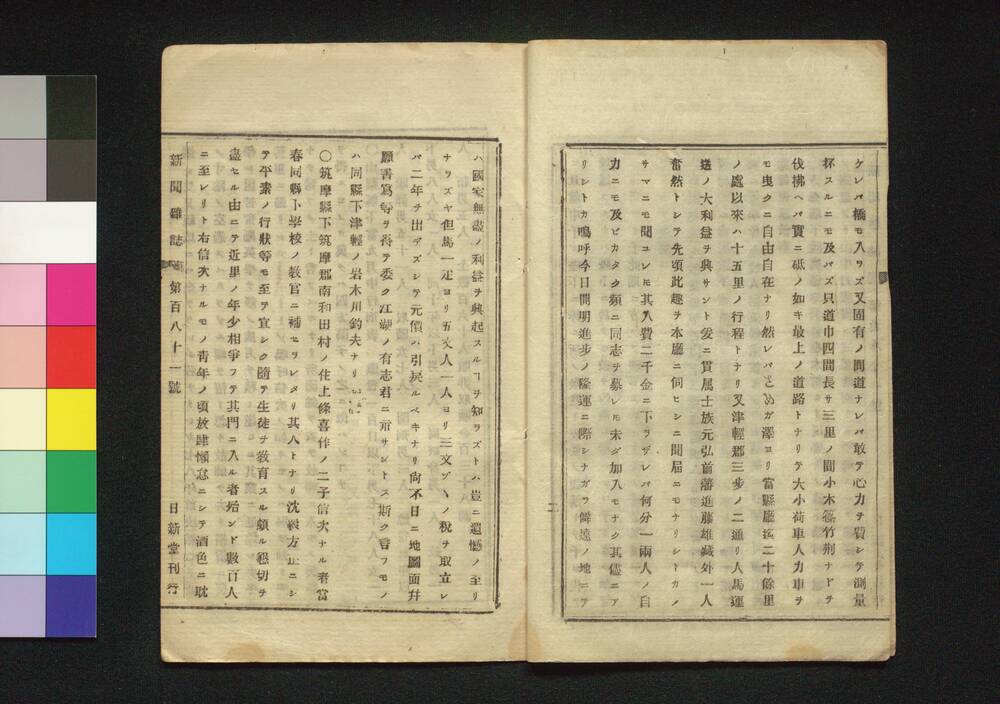 ケレバ橋モ入ラズ又固有ノ間道ナレバ敢テ心力ヲ費シテ測量
杯スルニモ及バズ只道巾四間長サ三里ノ間小木篠竹荆ナドヲ
伐拂ヘバ實ニ砥ノ如キ最上ノ道路トナリテ大小荷車人力車ヲ
モ曳クニ自由自在ナリ然レバ ガ澤ヨリ當縣廳迄二十餘里
ノ處以來ハ十五里ノ行程トナリ又津輕郡三步ノ二通リ人馬運
送ノ大利益ヲ興サント爰ニ貫属士族元弘前藩進藤雄藏外一人
奮然トシテ先頃此趣ヲ本廳ニ伺ヒシニ聞届ニモナリシトカノ
サマニモ聞ユレモ其入費二千金ニ下ラザレバ何分一兩人ノ自
力ニモ及ビカタク頻ニ同志ヲ募レモ未ダ加入モナク其儘ニア
リシトカ嗚呼今日開明進步ノ隆運ニ際シナガラ僻遠ノ地ニテ
二
ハ國家無盡ノ利益ヲ興起スルヿヲ知ラズトハ豈ニ遺憾ノ至リ
ナラズヤ但馬一疋ヨリ五文人一人ヨリ三文ヅヽノ稅ヲ取立レ
バ二年ヲ出デズシテ元價ハ引戾ルベキナリ尙不日ニ地圖面幷
願書寫等ヲ得テ委ク江湖ノ有志君ニ示サントス斯ク書フモノ
ハ同縣下津輕ノ岩木川釣夫ナリ
〇筑摩縣下筑摩郡南和田村ノ住上條喜作ノ二子信次ナル者當
春同縣下學校ノ敎官ニ補セラレタリ其人トナリ沈毅方正ニシ
テ平素ノ行狀等モ至テ宜シク隨テ生徒ヲ敎育スル頗ル懇切ヲ
盡セル由ニテ近里ノ年少相爭フテ其門ニ入ル者殆ンド數百人
ニ至レリト右信次ナルモノ青年ノ頃放肆懶惰ニシテ酒色ニ耽
新聞雜誌 第百八十一號 日新堂刊行